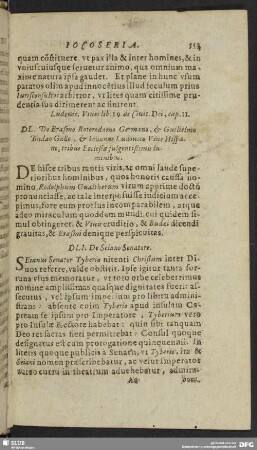 IOCOSERIA. 353
quam constituere. vt pax illa & inter homines, & in
vniuscuiusque seruetur animo, qua omnium ma-
xime natura ipsa gaudet. Et plane in hunc vsum
paratos olim apud innocétius illud seculum prius
Iurisconsultos arbitror, vt lites quam citissime pru-
dentia sua dirimerent ac finirent.
Ludouic. Viues lib. 19. de Ciuit. Dei, cap. 11.
DL. De Erasmo Roterodamo Germano, & Guilielmo
Budæo Gallo, & Iohanne Ludouico Viue Hispa-
no, tribus Ecclesiæ fulgentissimis lu-
minibus.
DE hisce tribus motis viris, ac omni laude supe-
rioribus hominibus, quos honoris caussa no-
mino, Rodolphum Gualtherum virum apprime doctū
pronunciasse, ac tale interposuisse iudicium aiunt,
horum sibi trium eos profectus incomparabilem, atque
adeo mirandum posse euadere eum, cui quidem si-
mul obtingeret, & Viuis eruditio, & Budæi dicendi
grauitas, & Erasmi denique perspicuitas.
DLI. De Seiano Senatore.
SEianus Senator Tyberio nitenti Christum inter Di-
uos referre, valde obstitit. Ipse igitur tanta for-
tuna vsus memoratur, vt toto orbe celebraretur
nomine amplissimus quasque dignitates fuerit as-
secutus, vel semper ipse imperio pro libitu admini-
strans: absente enim Tyberio apud insulam Ca-
pream se ipsum pro Imperatore, Tyberium vero
pro Insulæ Rectore habebat: quin sibi tanquam
Deo res sacras fieri permittebat: Consul quoque
designatus est cum prorogatione quinquennii. In
litteris quoque publicis a Senatu, vt Tyberio, ita &
Seiani nomen præscribebatur, ac velut Imperator
aureo curru in theatrum aduehebatur, admira-
Aa